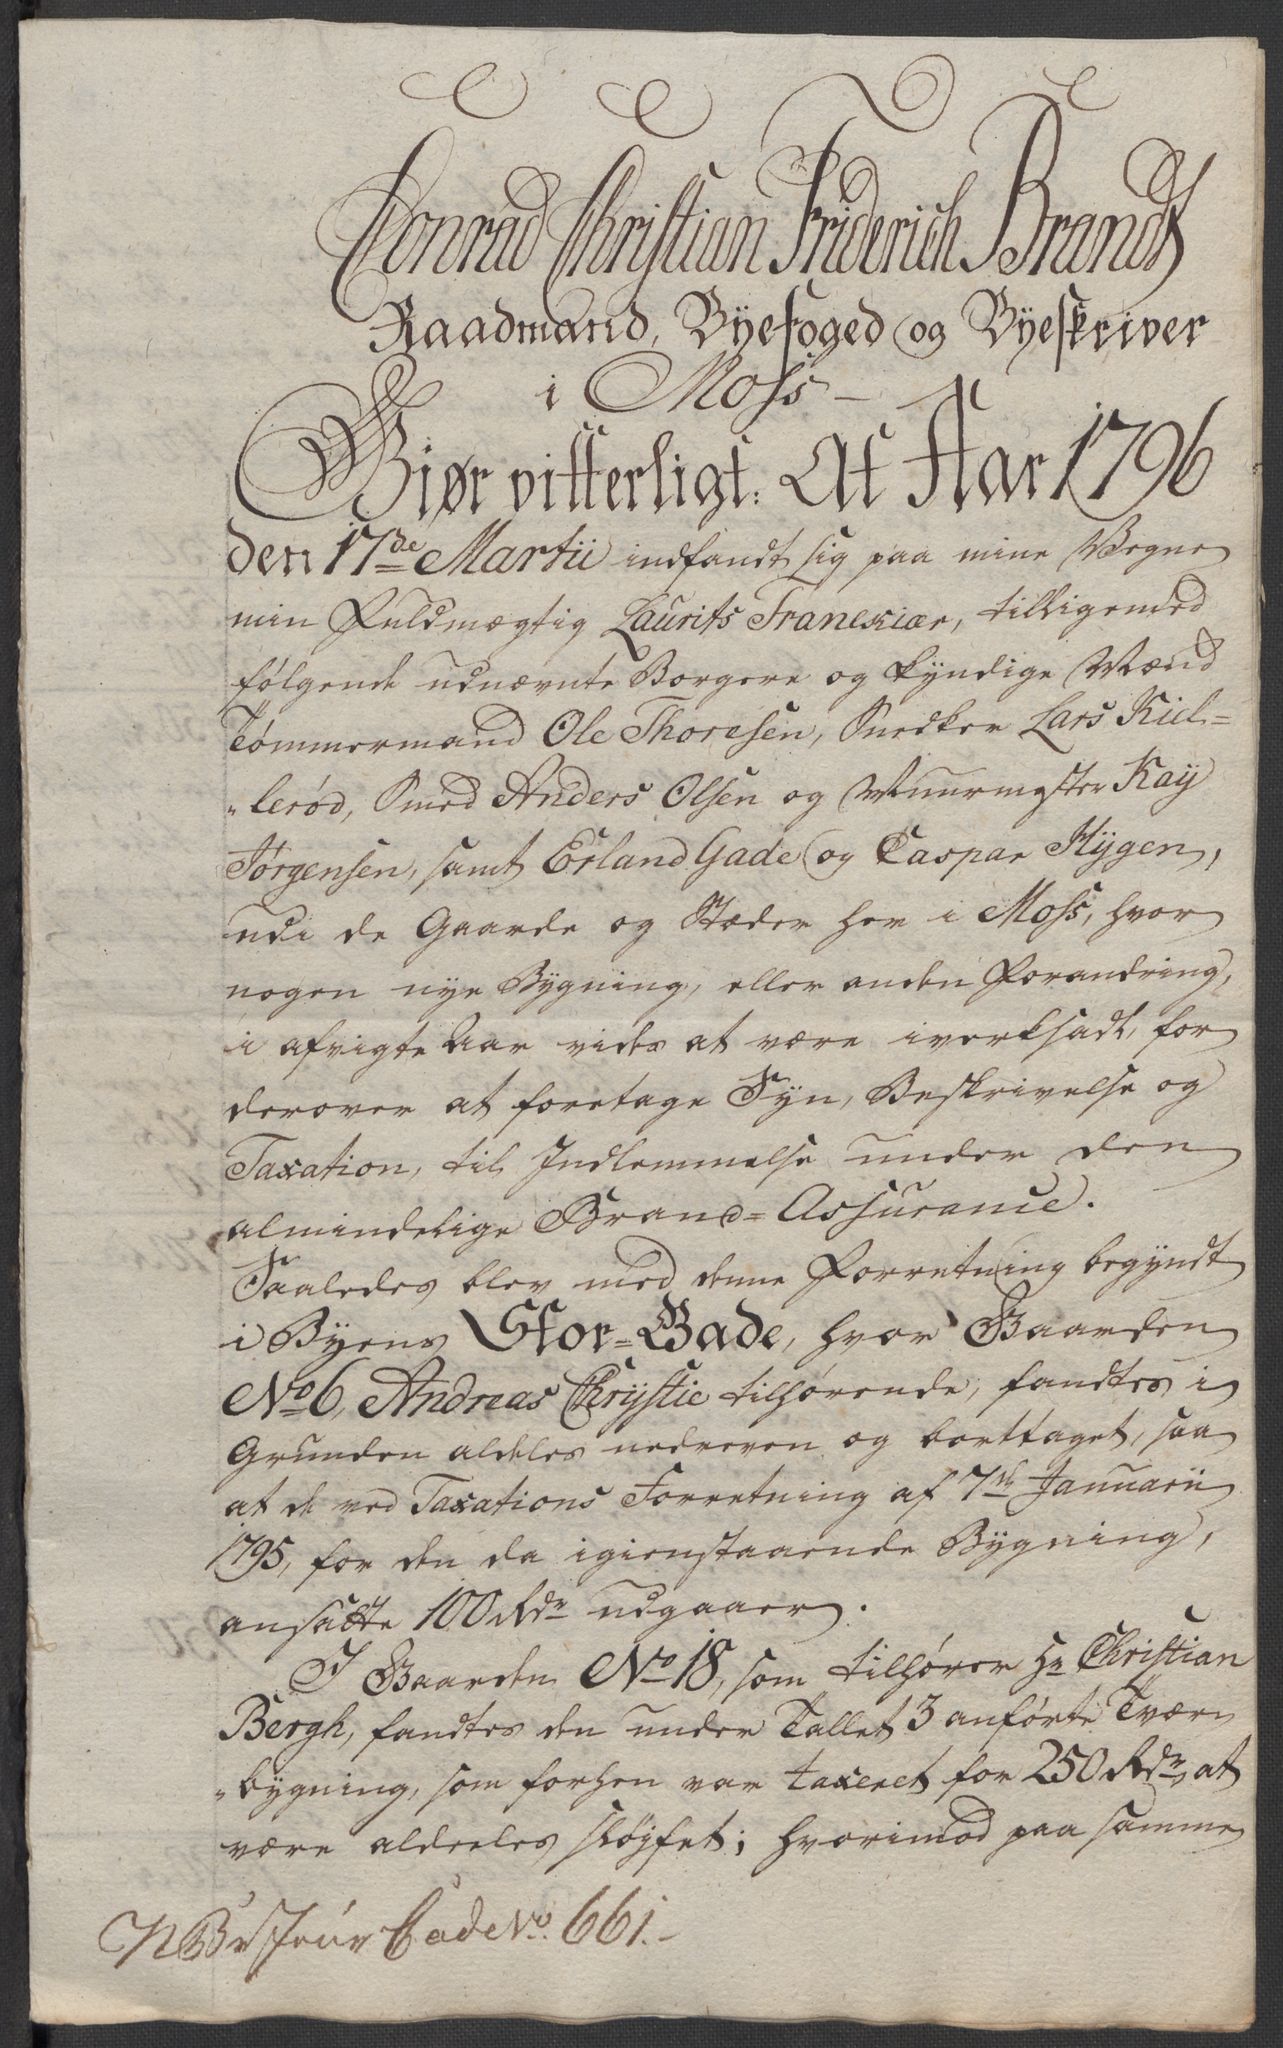 Conrad Christian Friderich Brandt
Raadmand, Byefoged og Byeskriver
i Moss –
Giør vitterligt: At Aar 1796
den 17de Martii indfandt sig paa mine Vegne
min Fuldmægtig Laurits Franckiær, tilligemed
følgende udnævnte Borgere og kyndige Mænd
Tømmermand Ole Thoresen, Snedker Lars Kiel=
„lerød, Smed Anders Olsen og Muurmester Kay
Jørgensen, samt Erland Gade og Caspar Hygen,
udi de Gaarde og Stæder her i Moss, hvor
nogen nye Bygning, eller anden Forandring,
i afvigte Aar vides at være iverksadt, for
derover at foretage Syn, Beskrivelse og
Taxation, til Indlemmelse under den
almindelige Brand=Assurance.
Saaledes blev med denne Forretning begyndt
i Byens Stor=Gade, hvor Gaarden
No 6, Andreas Chrystie tilhørende, fandtes i
Grunden aldeles nedreven og borttaget, saa
at de ved Taxations Forretning af 7de Januarii
1795, for den da igienstaaende Bygning,
ansatte 100 Rdr udgaaer.
I Gaarden No 18, som tilhører Hr Christian
Bergh, fandtes den under Tallet 3 anførte Tvær
„bygning, som forhen var taxeret for 250 Rdr, at
være aldeeles sløyfet; hvorimod paa samme
No. 661.